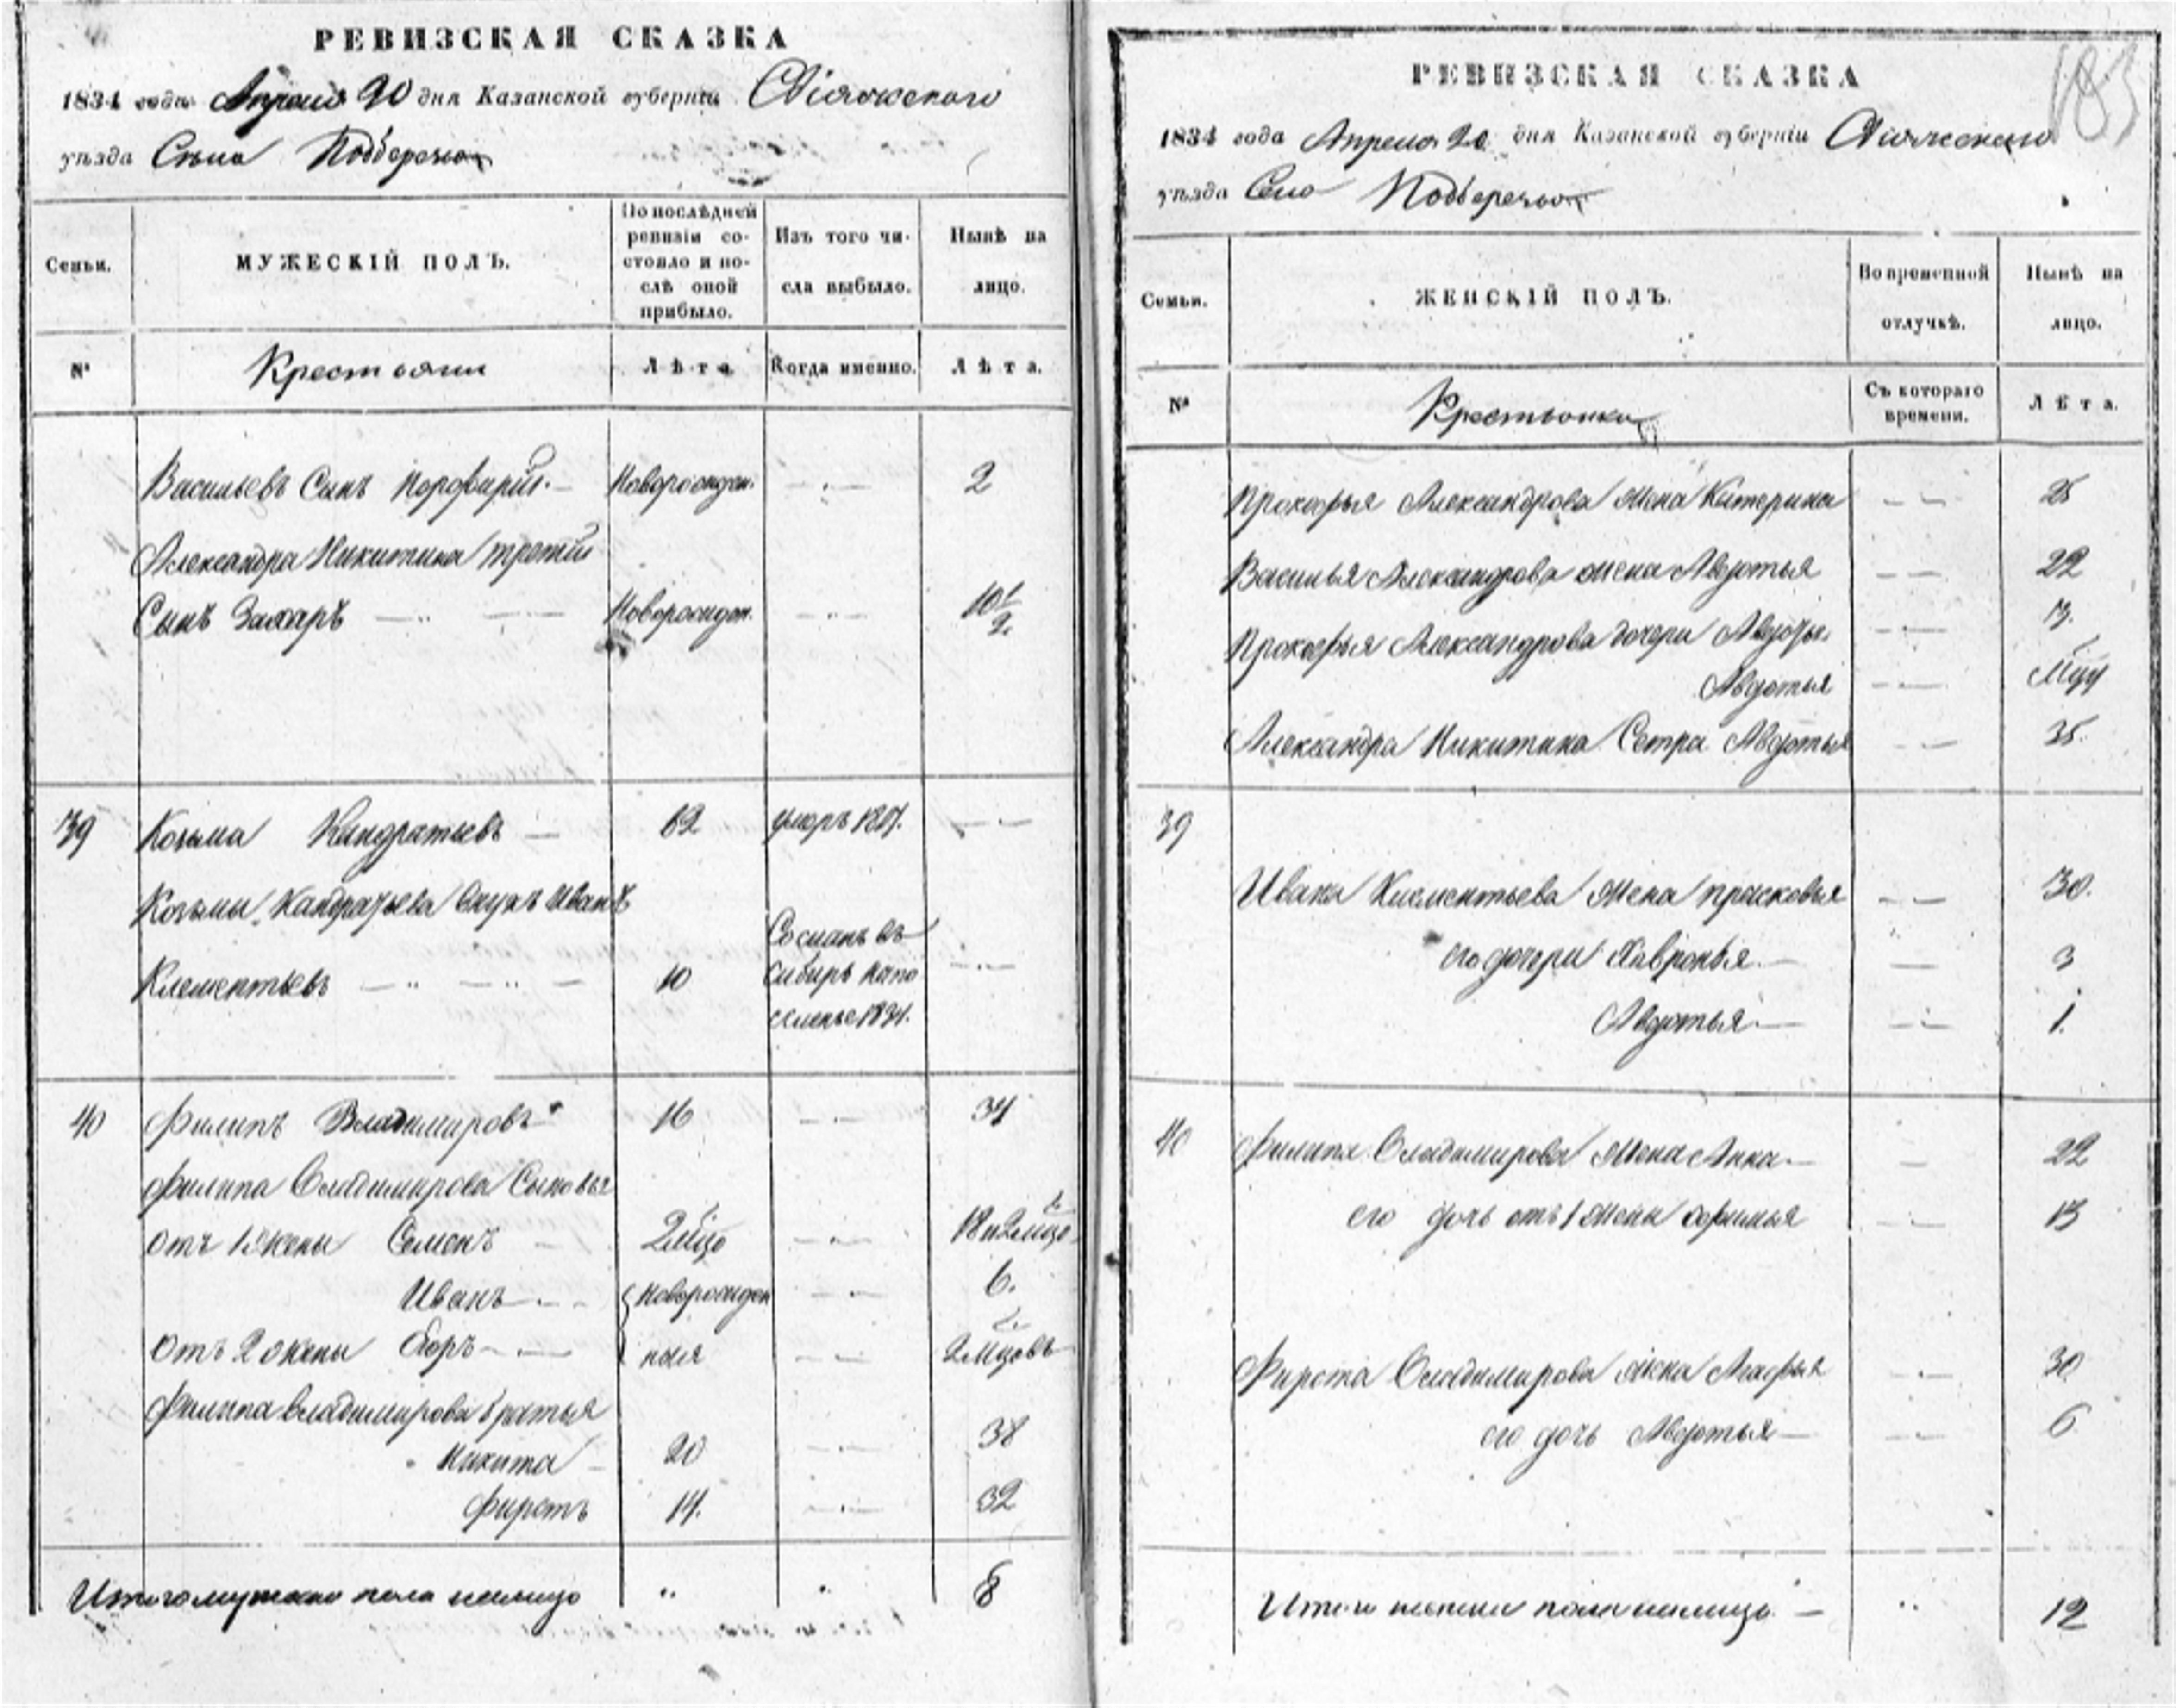 РЕВИЗСКАЯ СКАЗКА
1834 года Апреля 20 дня Казанской губернiи Свiяжскаго
уѣзда Села Подберезья
Семьи.
МУЖЕСКIЙ ПОЛЪ.
По послѣдней ревизiи со-
стояло и по-
слѣ оной
прибыло.
Изъ того чи-
сла выбыло.
Нынѣ на
лицо.
№
Крестьяни
Лѣта
Когда именно.
Лѣта.
Васильевъ Сынъ Порфирiй - Новорожден. 2
Александра Никитина третiй
Сынъ Захаръ Новорожден. 10 1/2
39 Козьма Кандратьевъ 62 умеръ
Козьмы Кандратьева внукъ Иванъ
Клементьевъ 10 Сосланъ въ
сибирь напо
селенье 1831.
40 Филипъ Владимировъ 16 34
Филипа Владимирова Сыновья
отъ 1 жены Семенъ 2 мцо 18 и 2 мцо
Иванъ новорожден 6.
отъ 2 жены ныя 2 мцовъ
Филипа Владимирова братья
Никита 20 38
Фирстъ 14. 32
Итого мужеска пола налицо 8
183
РЕВИЗСКАЯ СКАЗКА
1834 года Апреля 20 дня Казанской губернiи Свiяжскаго
уѣзда Села Подберезья
Семьи.
ЖЕНСКIЙ ПОЛЪ.
Во временной
отлучкѣ.
Нынѣ на
лицо.
№
Крестьянки
Съ котораго
времени.
Лѣта.
Прокофья Александрова жена Катерина 25
Василья Александрова жена Авдотья 22
Прокофья Александрова дочери Авдотья 3.
Авдотья
Александра Никитина Сетра Авдотья 35.
39
Ивана Клементьева жена прасковья 30.
его дочери Хавронья 3
Авдотья 1.
40 Филипа Владимирова жена Анна 22
его дочь отъ 1 жены 13
Фирста Владимирова жена Агафья 30
его дочь Авдотья 6
Итого женска пола налицо 12